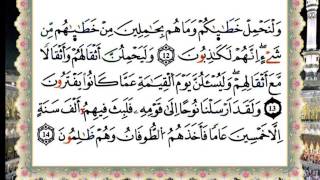 وَلْنَحْمِلْ خَطٰيٰكُمْ وَمَا هُمْ بِحٰمِلِيْنَ مِنْ خَطٰيٰهُمْ مِّنْ
شَيْءٍ اِنَّهُمْ لَكٰذِبُوْنَ ١٢ وَلَيَحْمِلُنَّ اَثْقَالَهُمْ وَاَثْقَالًا
مَّعَ اَثْقَالِهِمْ وَلَيُسْـَٔلُنَّ يَوْمَ الْقِيٰمَةِ عَمَّا كَانُوْا يَفْتَرُوْنَ
١٣ وَلَقَدْ اَرْسَلْنَا نُوْحًا اِلٰى قَوْمِهٖ فَلَبِثَ فِيْهِمْ اَلْفَ سَنَةٍ
اِلَّا خَمْسِيْنَ عَامًا فَاَخَذَهُمُ الطُّوْفَانُ وَهُمْ ظٰلِمُوْنَ ١٤